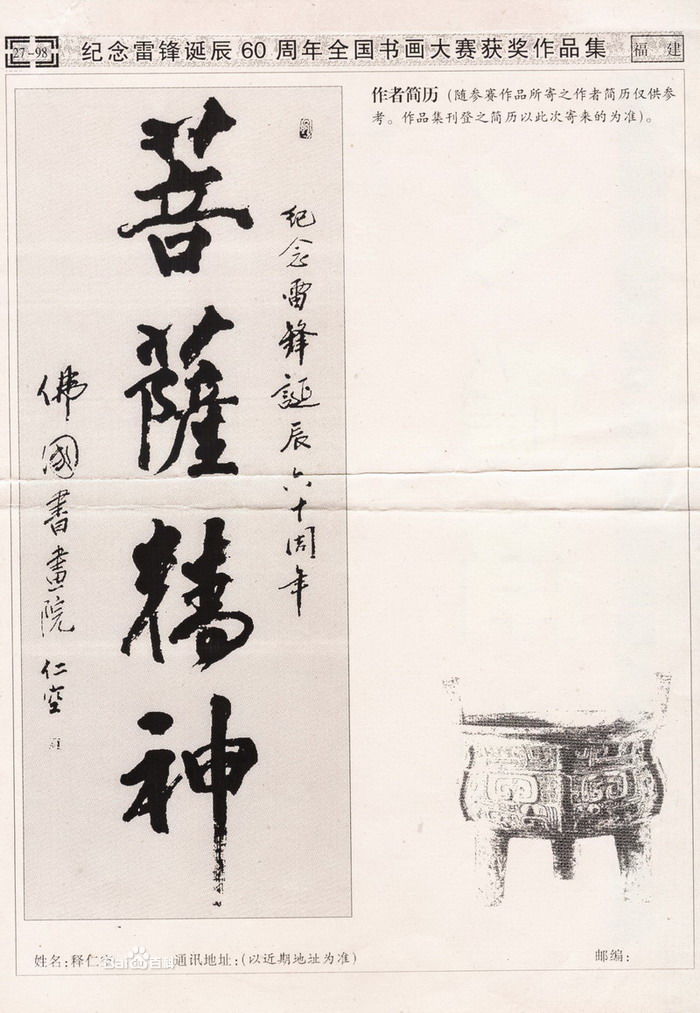 27-98
纪念雷锋诞辰60周年全国书画大赛获奖作品集
福建
作者简历(随参赛作品所寄之作者简历仅供参
考。作品集刊登之简历以此次寄来的为准)。
紀念雷鋒誕辰六十周年
菩薩精神
佛國書畫院 仁空
姓名:释仁空
Bai百科
通讯地址:(以近期地址为准)
邮编: